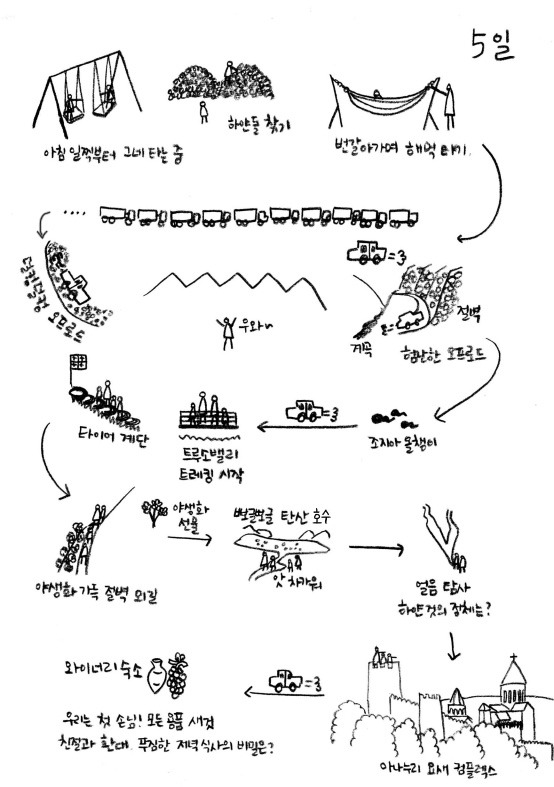 5일
아침 일찍부터 그네 타는 중
하얀돌 찾기
번갈아가며 해먹 타기.
....
=3
덜컹덜컹
오프로드
우와~
절벽
계곡
험난한 오프로드
타이어 계단
트루소밸리
트레킹 시작
=3
조지아 올챙이
야생화 가득 절벽 외길
야생화
선물
뽀글뽀글 탄산 호수
앗 차가워
얼음 탐사
하얀것의 정체는?
와이너리 숙소
=3
우리는 첫 손님! 모든 용품 새것
친절과 환대. 푸짐한 저녁식사의 비밀은?
아나누리 요새 컴플렉스